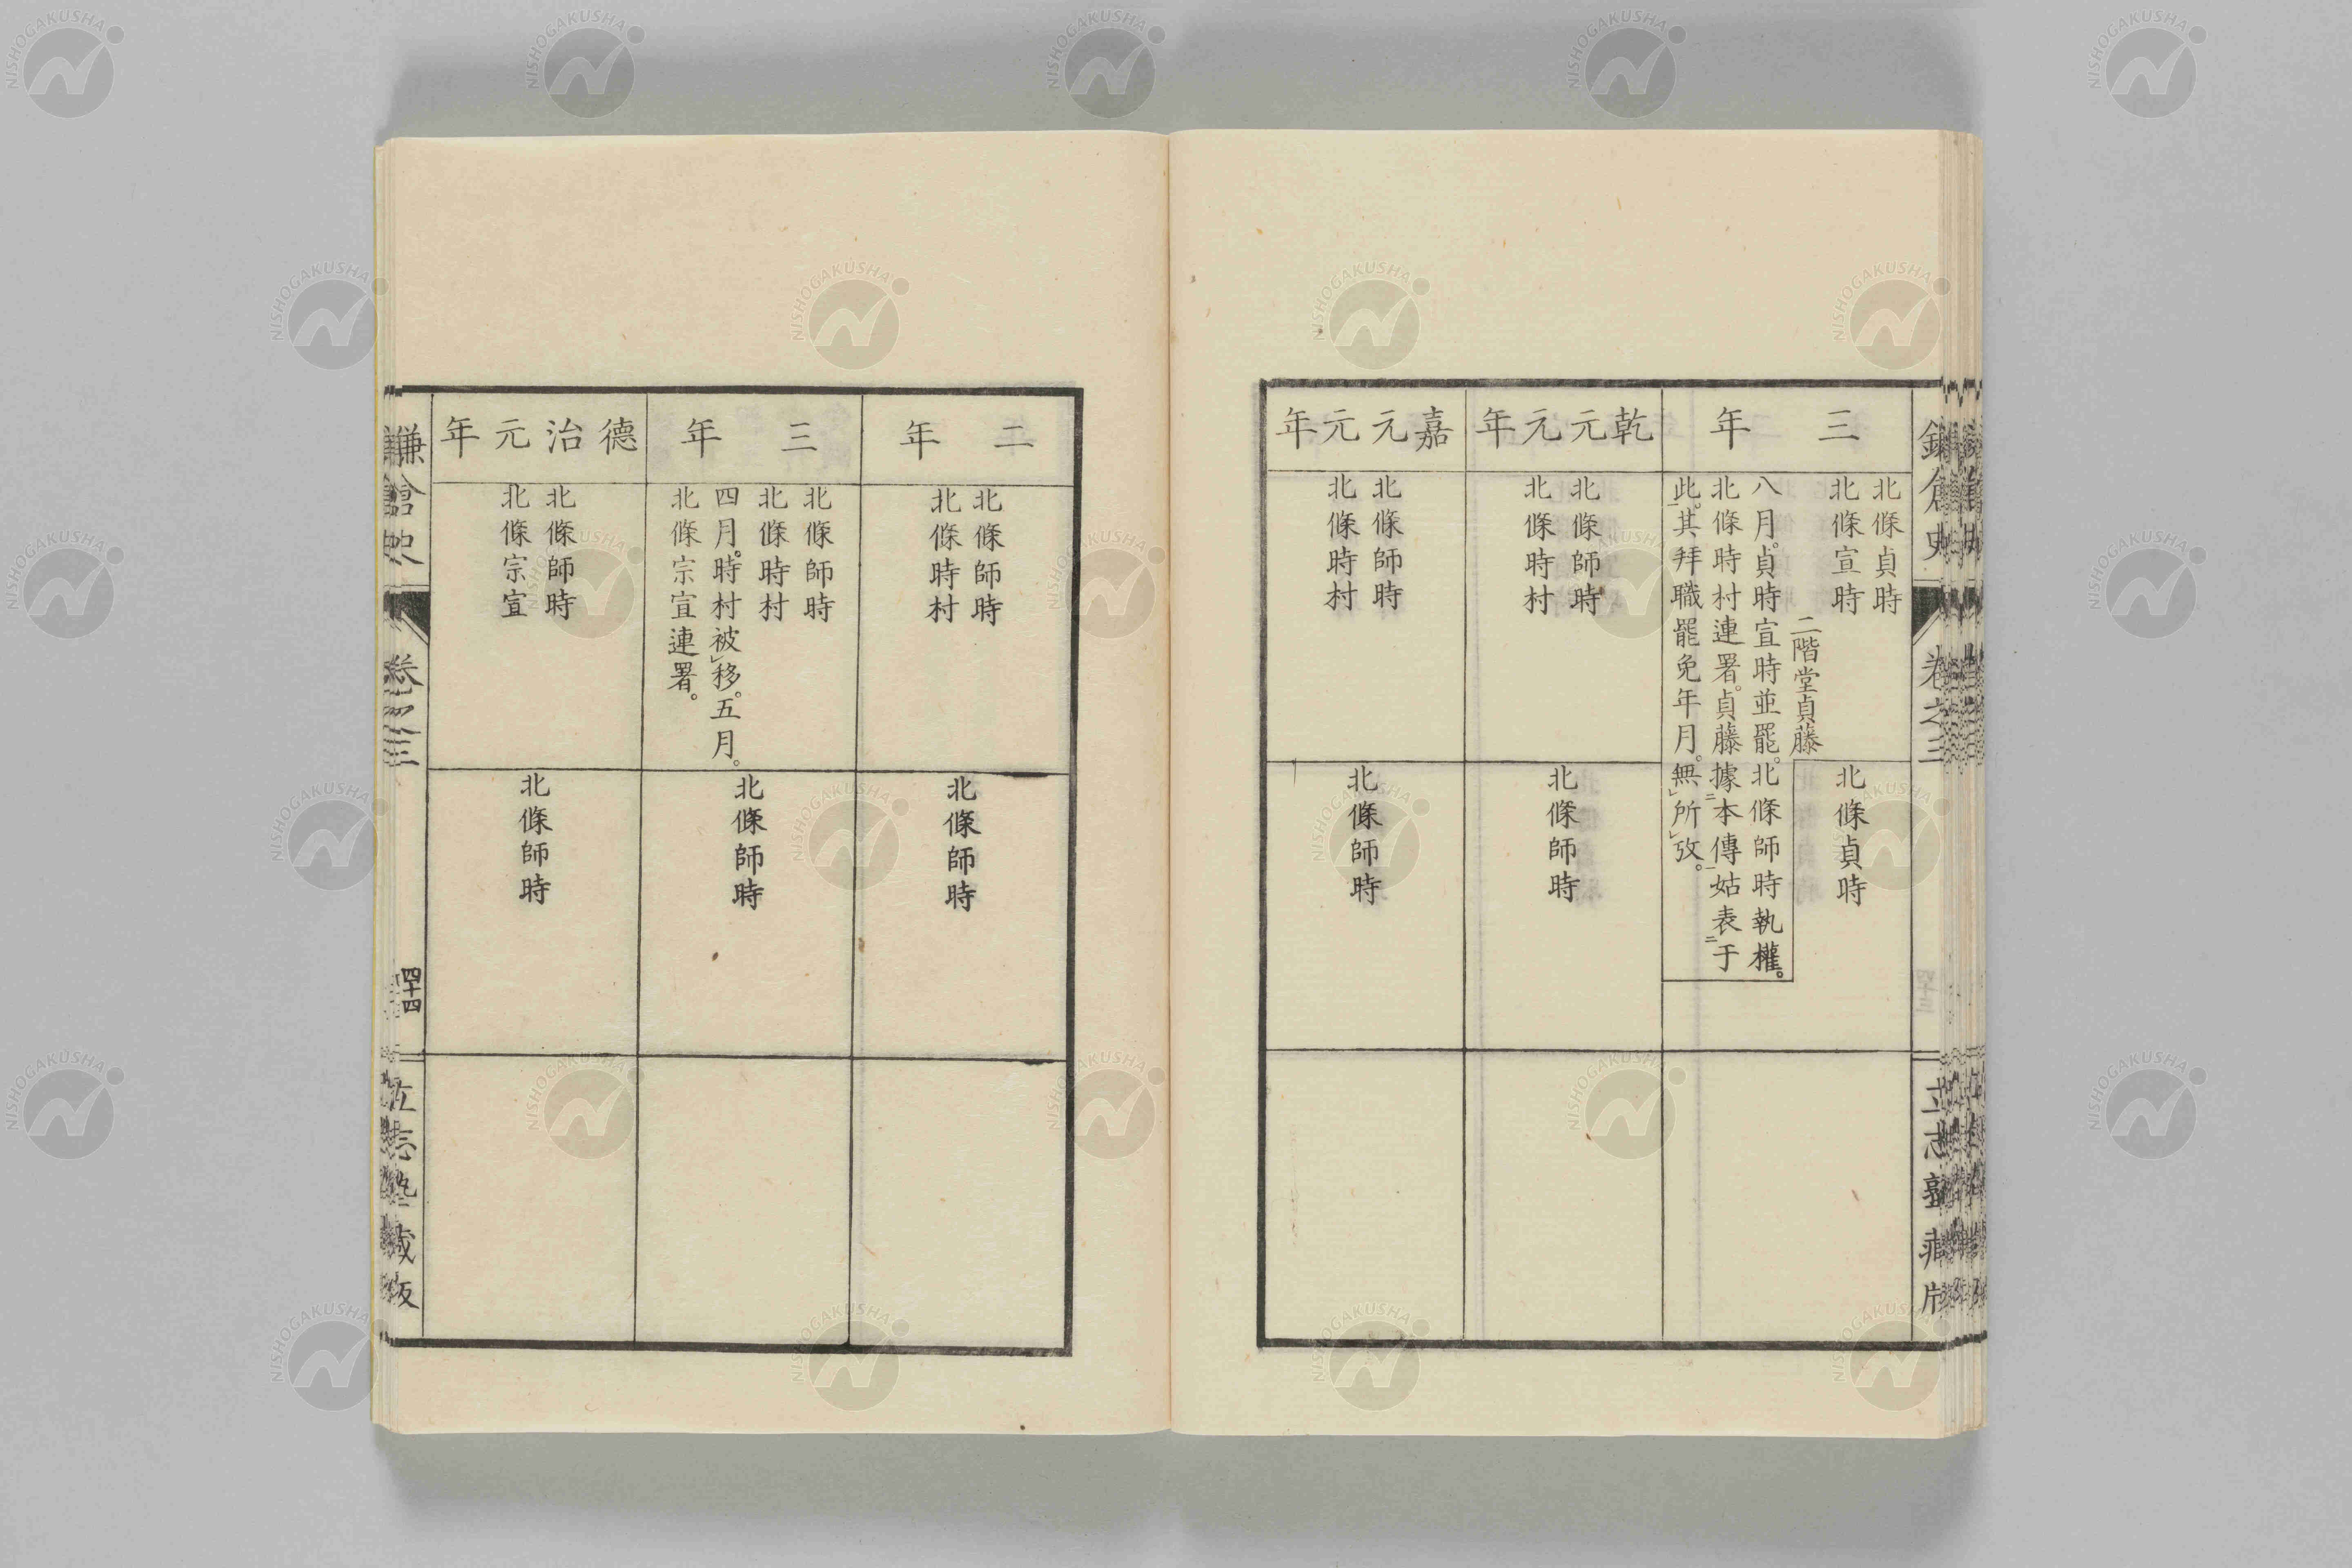 三年
北條貞時
北條宣時
二階堂貞藤
八月。貞時宣時並罷。北條師時執權。
北條時村連署。貞藤據二本傳一姑表二于
此一。其拜職罷免年月。無レ所レ攷。
北條貞時
乾元元年
北條師時
北條時村
北條師時
嘉元元年
北條師時
北條時村
北條師時
二年
北條師時
北條時村
北條師時
三年
北條師時
北條時村
四月。時村被レ移。五月。
北條宗宣連署。
北條師時
德治元年
北條師時
北條宗宣
北條師時
四十四
NISHOGAKUSHA